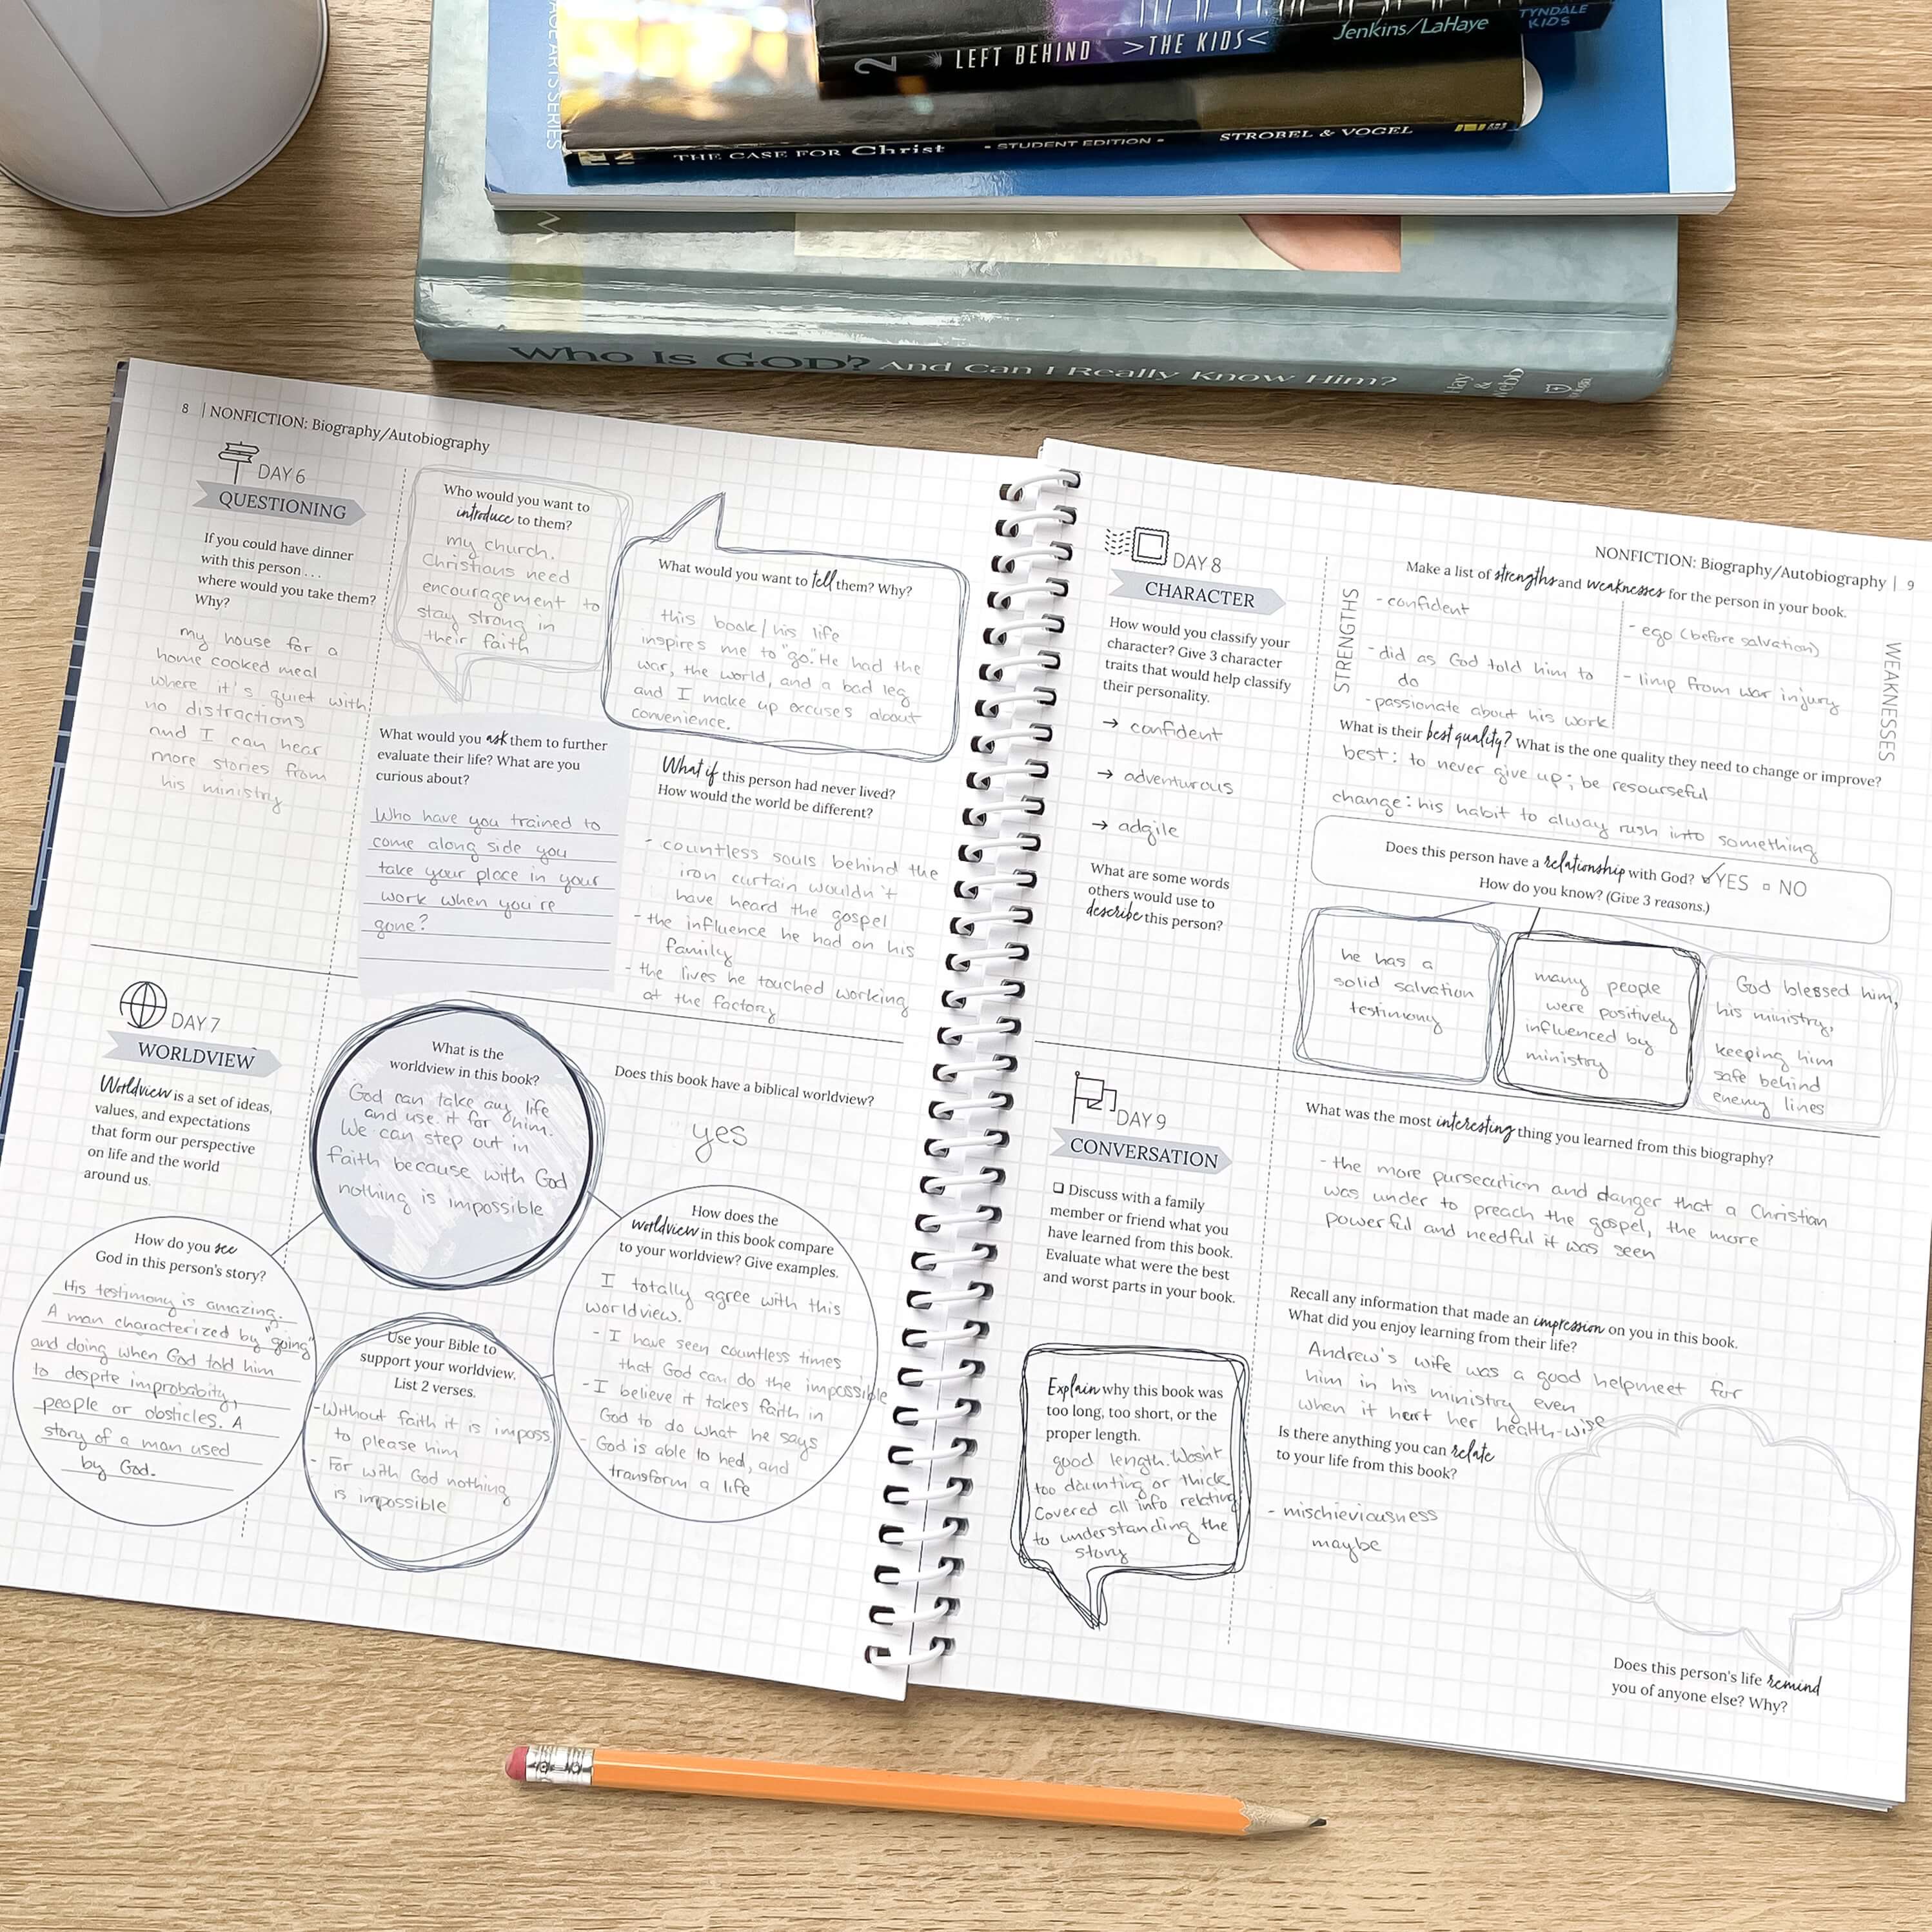 AGE ARTS SERIES
2 LEFT BEHIND >THE KIDS< Jenkins/LaHaye TYNDALE KIDS
THE CASE FOR Christ - STUDENT EDITION - STROBEL & VOGEL
W
Who Is GOD? And Can I Really Know Him?
8 | NONFICTION: Biography/Autobiography
DAY 6
QUESTIONING
If you could have dinner
with this person . . .
where would you take them?
Why?
my house for a
home cooked meal
where it's quiet with
no distractions
and I can hear
more stories from
his ministry
Who would you want to
introduce to them?
my church.
Christians need
encouragement to
stay strong in
their faith
What would you want to tell them? Why?
this book/his life
inspires me to "go." He had the
war, the world, and a bad leg
and I make up excuses about
convenience.
What would you ask them to further
evaluate their life? What are you
curious about?
Who have you trained to
come along side you
take your place in your
work when you're
gone?
What if this person had never lived?
How would the world be different?
- countless souls behind the
iron curtain wouldn't
have heard the gospel
- the influence he had on his
family
- the lives he touched working
at the factory
DAY 7
WORLDVIEW
Worldview is a set of ideas,
values, and expectations
that form our perspective
on life and the world
around us.
What is the
worldview in this book?
God can take any life
and use it for him.
We can step out in
faith because with God
nothing is impossible
Does this book have a biblical worldview?
yes
How do you see
God in this person's story?
His testimony is amazing.
A man characterized by "going"
and doing when God told him
to despite improbabity,
people or obsticles. A
story of a man used
by God.
Use your Bible to
support your worldview.
List 2 verses.
- Without faith it is imposs
to please him
- For with God nothing
is impossible
How does the
worldview in this book compare
to your worldview? Give examples.
I totally agree with this
worldview.
- I have seen countless times
that God can do the impossible
- I believe it takes faith in
God to do what he says
- God is able to and
transform a life
NONFICTION: Biography/Autobiography | 9
DAY 8
CHARACTER
How would you classify your
character? Give 3 character
traits that would help classify
their personality.
→ confident
→ adventurous
→ adgile
What are some words
others would use to
describe this person?
Make a list of strengths and weaknesses for the person in your book.
STRENGTHS
- confident
- did as God told him to
do
- passionate about his work
WEAKNESSES
- ego (before salvation)
- limp from war injury
What is their best quality? What is the one quality they need to change or improve?
best: to never give up; be resourseful
change: his habit to alway rush into something
Does this person have a relationship with God? ✓YES □ NO
How do you know? (Give 3 reasons.)
he has a
solid salvation
testimony
many people
were positively
influenced by
ministry
God blessed him,
his ministry,
keeping him
safe behind
enemy lines
DAY 9
CONVERSATION
❑ Discuss with a family
member or friend what you
have learned from this book.
Evaluate what were the best
and worst parts in your book.
Explain why this book was
too long, too short, or the
proper length.
good length. Wasn't
too daunting or thick
Covered all info relating
to understanding the
story
What was the most interesting thing you learned from this biography?
- the more pursecution and danger that a Christian
was under to preach the gospel, the more
powerful and needful it was seen
Recall any information that made an impression on you in this book.
What did you enjoy learning from their life?
Andrew's wife was a good helpmeet for
him in his ministry even
when it hert her health-wise
Is there anything you can relate
to your life from this book?
- mischieviousness
maybe
Does this person's life remind
you of anyone else? Why?